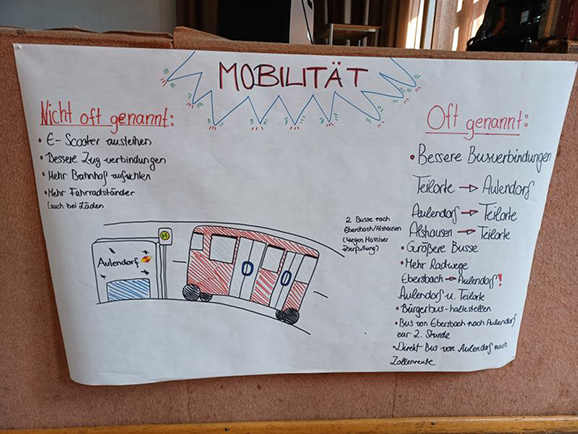 MOBILITÄT
Nicht oft genannt:
• E-Scooter ausleihen
• Bessere Zugverbindungen
• Mehr Bahnhof aufsehen
• Mehr Fahrradständer
(auch bei Läden)
Oft genannt:
• Bessere Busverbindungen
Teilorte → Aulendorf
Aulendorf → Teilorte
Altshausen → Teilorte
• Größere Busse
• Mehr Radwege
Ebersbach → Aulendorf!
Aulendorf u. Teilorte
• Bürgerbus-haltestellen
• Bus von Ebersbach nach Aulendorf
zur 2. Stunde
• Direkt Bus von Aulendorf nach
Zollenreute
2 Busse nach
Ebersbach/Altshausen
(wegen Massiver
Überfüllung)
H
Aulendorf